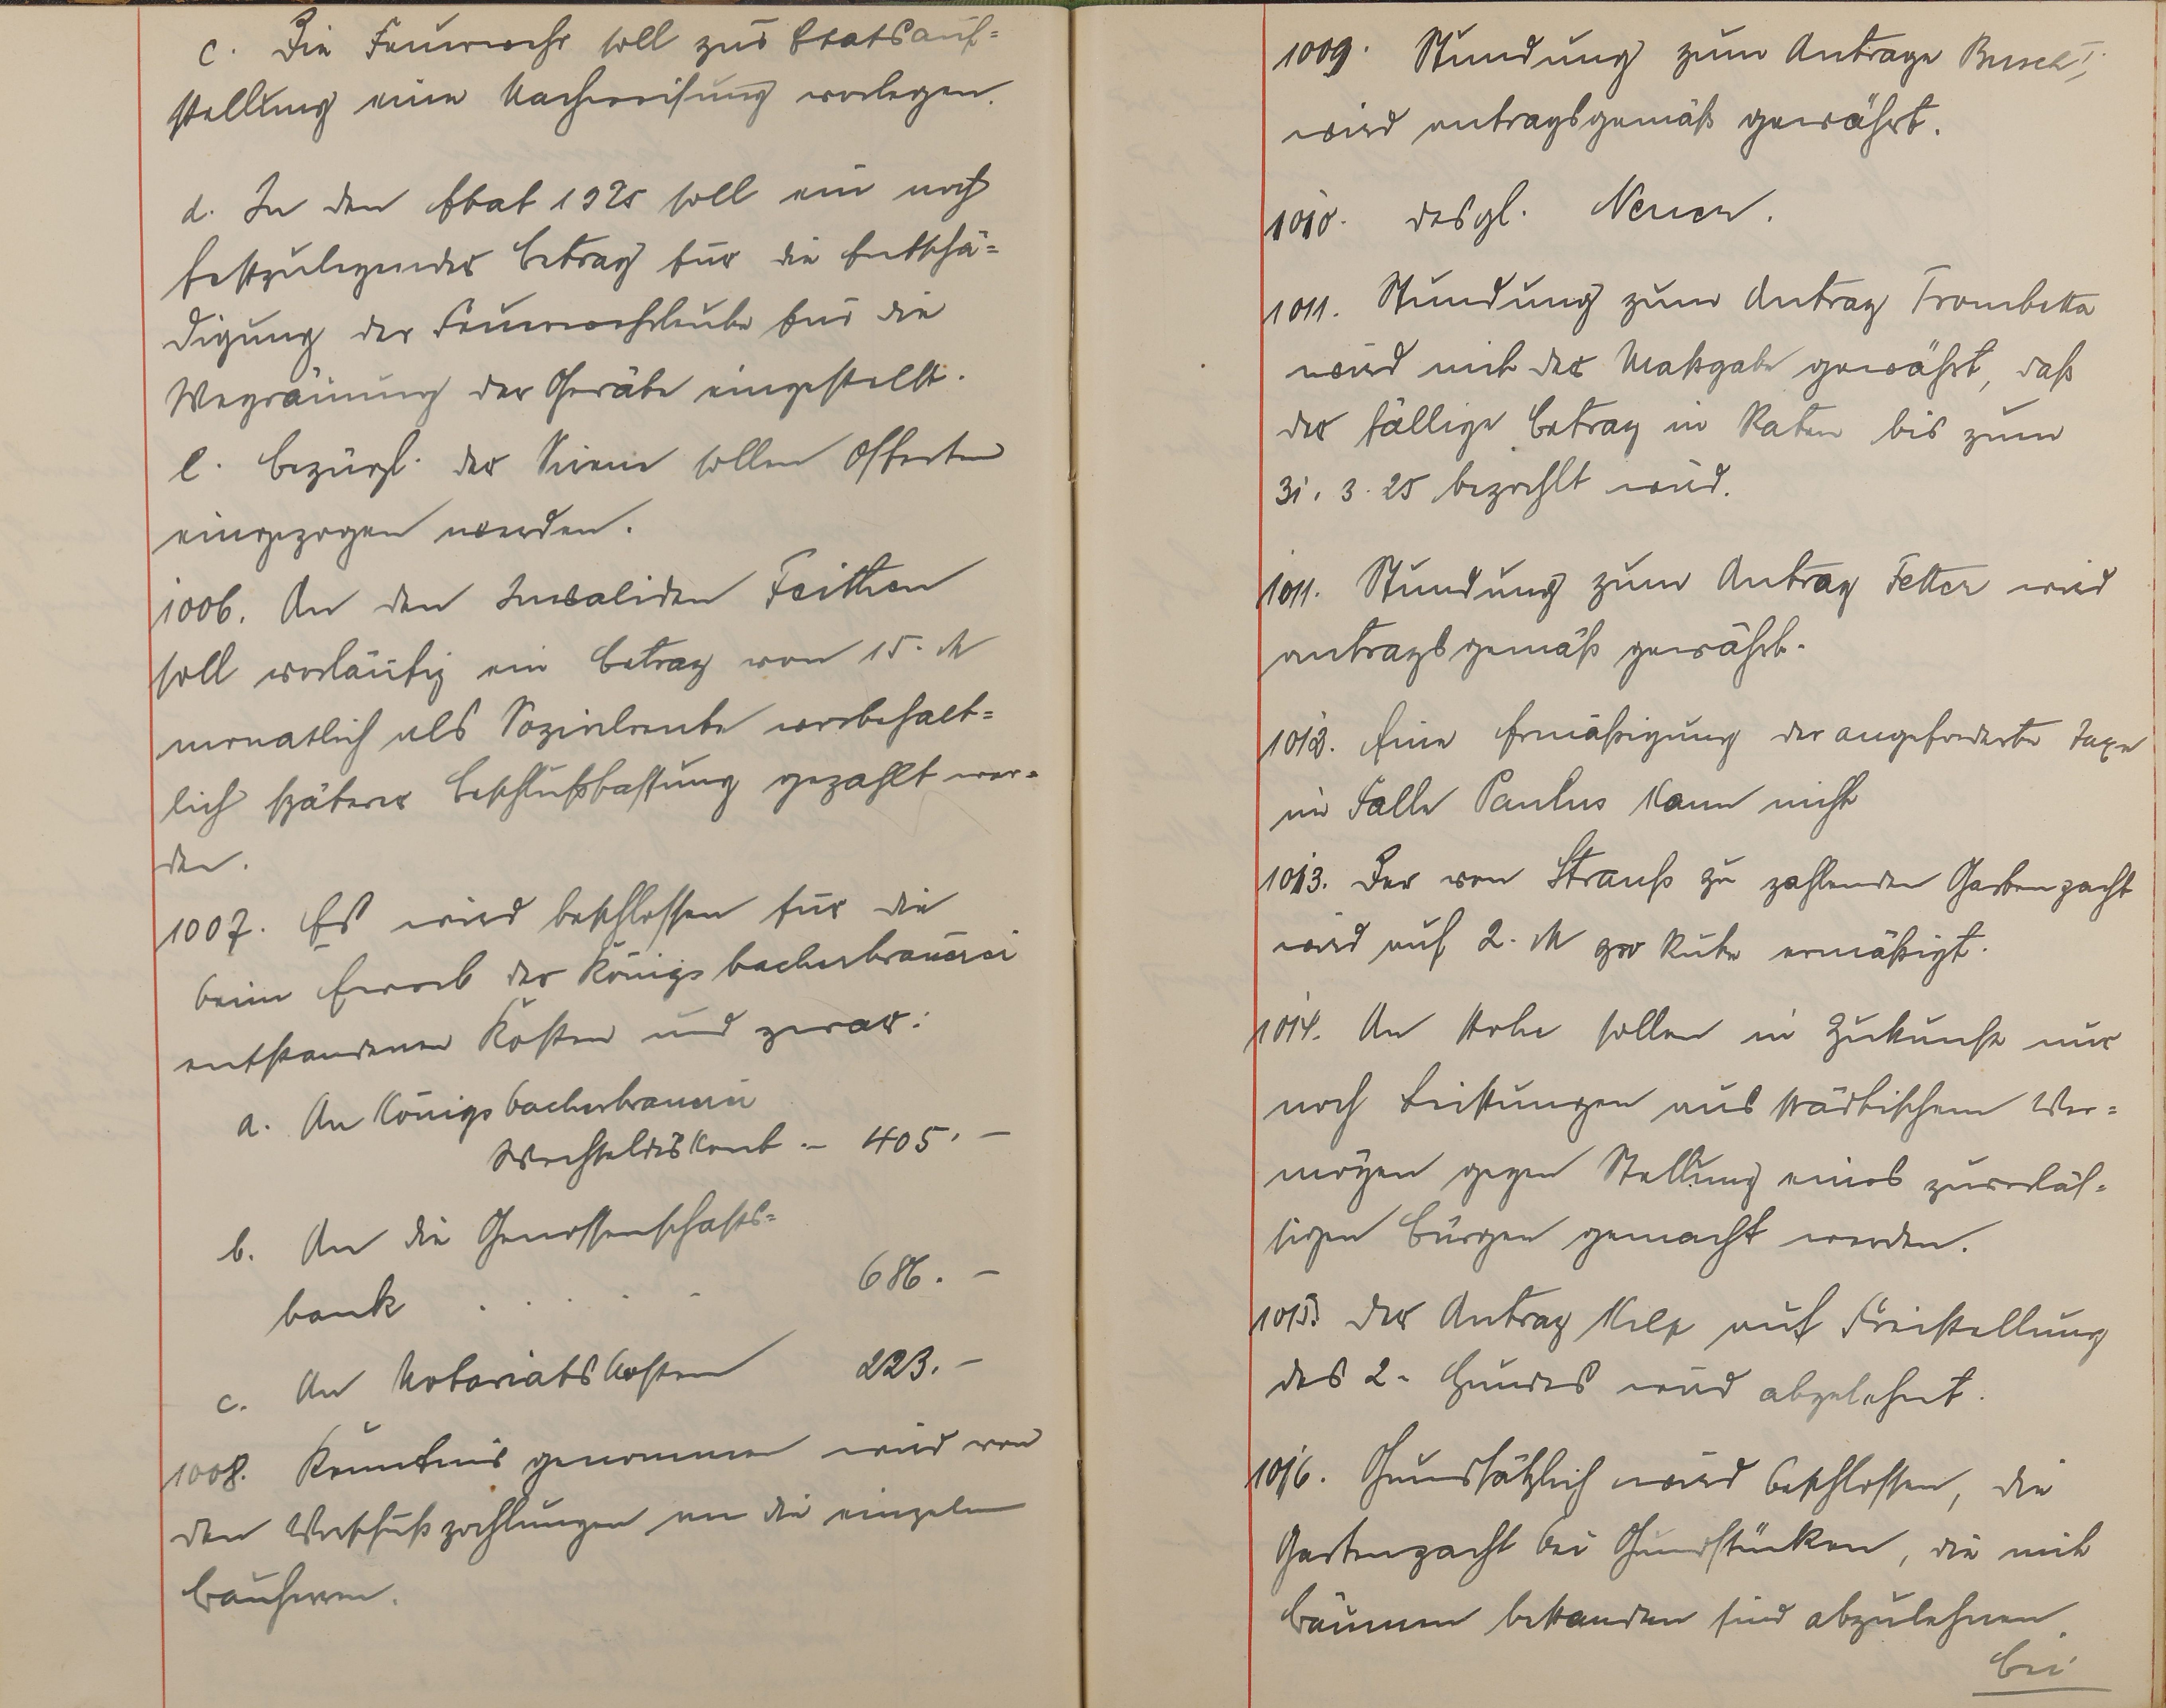 c. Die Feuerwehr soll zur Etatsauf=
stellung eine Nachweisung vorlegen.
d. In den Etat 1925 soll ein noch
festzulegender Betrag für die Entschä=
digung der Feuerwehrleute für die
Wegräumung der Geräte eingestellt.
e. Bezügl. der Sirene sollen Offerten
eingezogen werden.
1006. An den Invaliden Feithen
soll vorläufig ein Betrag von 15. M
monatlich als Sozialrente vorbehalt=
lich späterer Beschlußfassung gezahlt wer=
den.
1007. Es wird beschlossen für die
beim Erwerb der Königsbacherbrauerei
entstandenen Kosten und zwar:
a. An Königsbacherbrauerei
Wechseldiskont - 405. -
b. An die Genossenschafts=
bank . . . . - 686. -
c. An Notariatskosten 223. -
1008. Kenntnis genommen wird von
den Vorschußzahlungen an die einzelnen
Bauherren.
1009. Stundung zum Antrage Busch I,
wird antragsgemäß gewährt.
1010. desgl. Neuer.
1011. Stundung zum Antrag Trombetta
wird mit der Maßgabe gewährt, daß
der fällige Betrag in Raten bis zum
31. 3. 25 bezahlt wird.
1011. Stundung zum Antrag Fetter wird
antragsgemäß gewährt.
1012. Eine Ermäßigung der angeforderte Taxe
im Falle Paulus kann nicht
1013. Der von Strauß zu zahlenden Gartenpacht
wird auf 2. M pro Rute ermäßigt.
1014. An sollen in Zukunft nur
noch Leistungen aus städtischem Ver=
mögen gegen Stellung eines zuverläs=
sigen Bürgen gemacht werden.
1015. Der Antrag Kilp auf Freistellung
des 2. Hundes wird abgelehnt.
1016. Grundsätzlich wird beschlossen, die
Gartenpacht bei Grundstücken, die mit
Bäumen bestanden sind abzulehnen.
bei